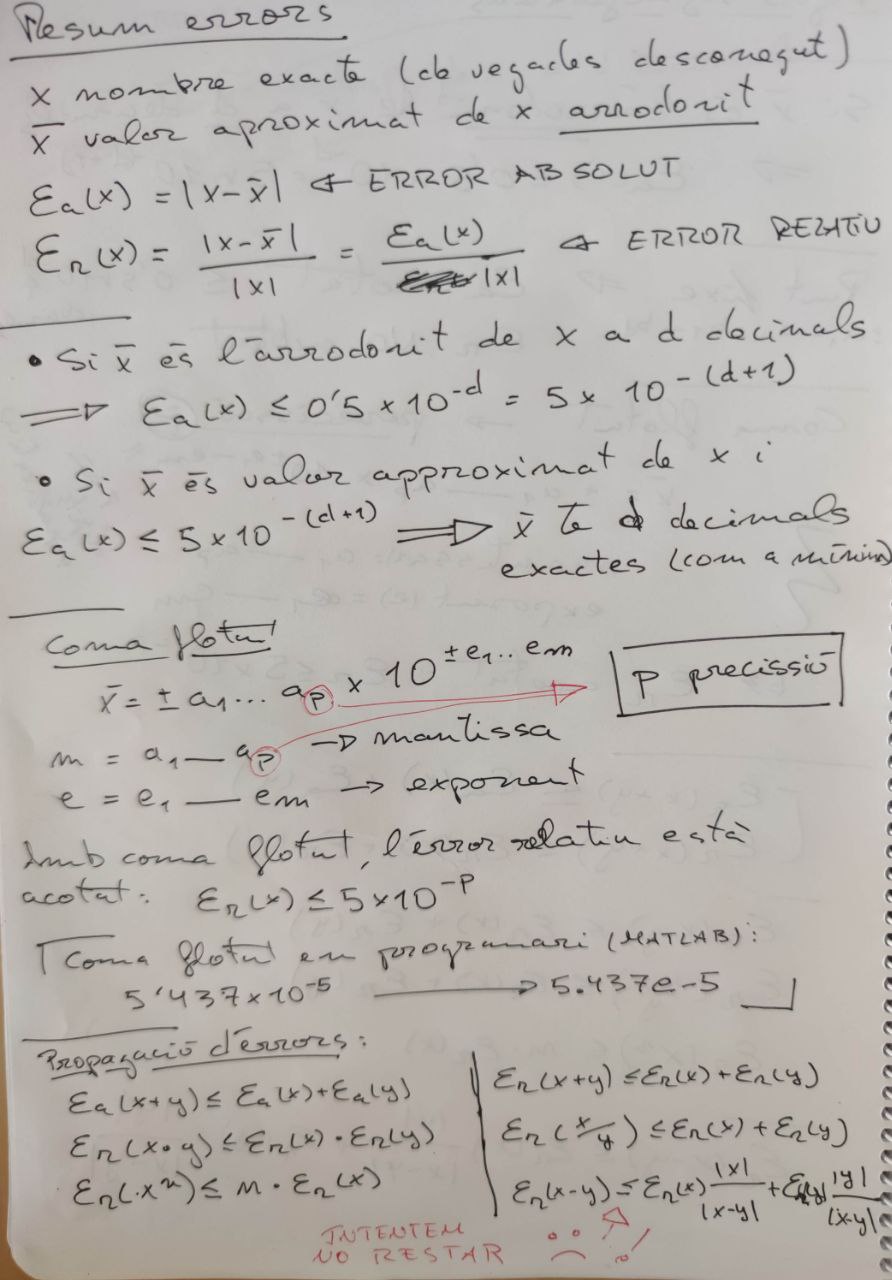 Resum errors
x nombre exacte (de vegades desconegut)
x̄ valor aproximat de x arrodonit
εa(x) = |x-x̄| ← ERROR ABSOLUT
εr(x) = |x-x̄| / |x| = εa(x) / |x| ← ERROR RELATIU
• Si x̄ és l'arrodonit de x a d decimals
⟹ εa(x) ≤ 0'5 × 10^-d = 5 × 10^-(d+1)
• Si x̄ és valor approximat de x i
εa(x) ≤ 5 × 10^-(d+1) ⟹ x̄ té d decimals
exactes (com a mínim)
Coma flotant
x̄ = ± a1... ap × 10^±e1..em → P precissió
m = a1 — ap → mantissa
e = e1 — em → exponent
Amb coma flotant, l'error relatiu està
acotat: εr(x) ≤ 5×10^-P
Coma flotant en programari (MATLAB):
5'437×10^-5 → 5.437e-5
Propagació d'errors:
εa(x+y) ≤ εa(x)+εa(y)
εr(x·y) ≤ εr(x)·εr(y)
εr(x^n) ≤ n·εr(x)
εr(x+y) ≤ εr(x)+εr(y)
εr(x/y) ≤ εr(x)+εr(y)
εr(x-y) ≤ εr(x) |x| / |x-y| + εr(y) |y| / |x-y|
INTENTEM
NO RESTAR !